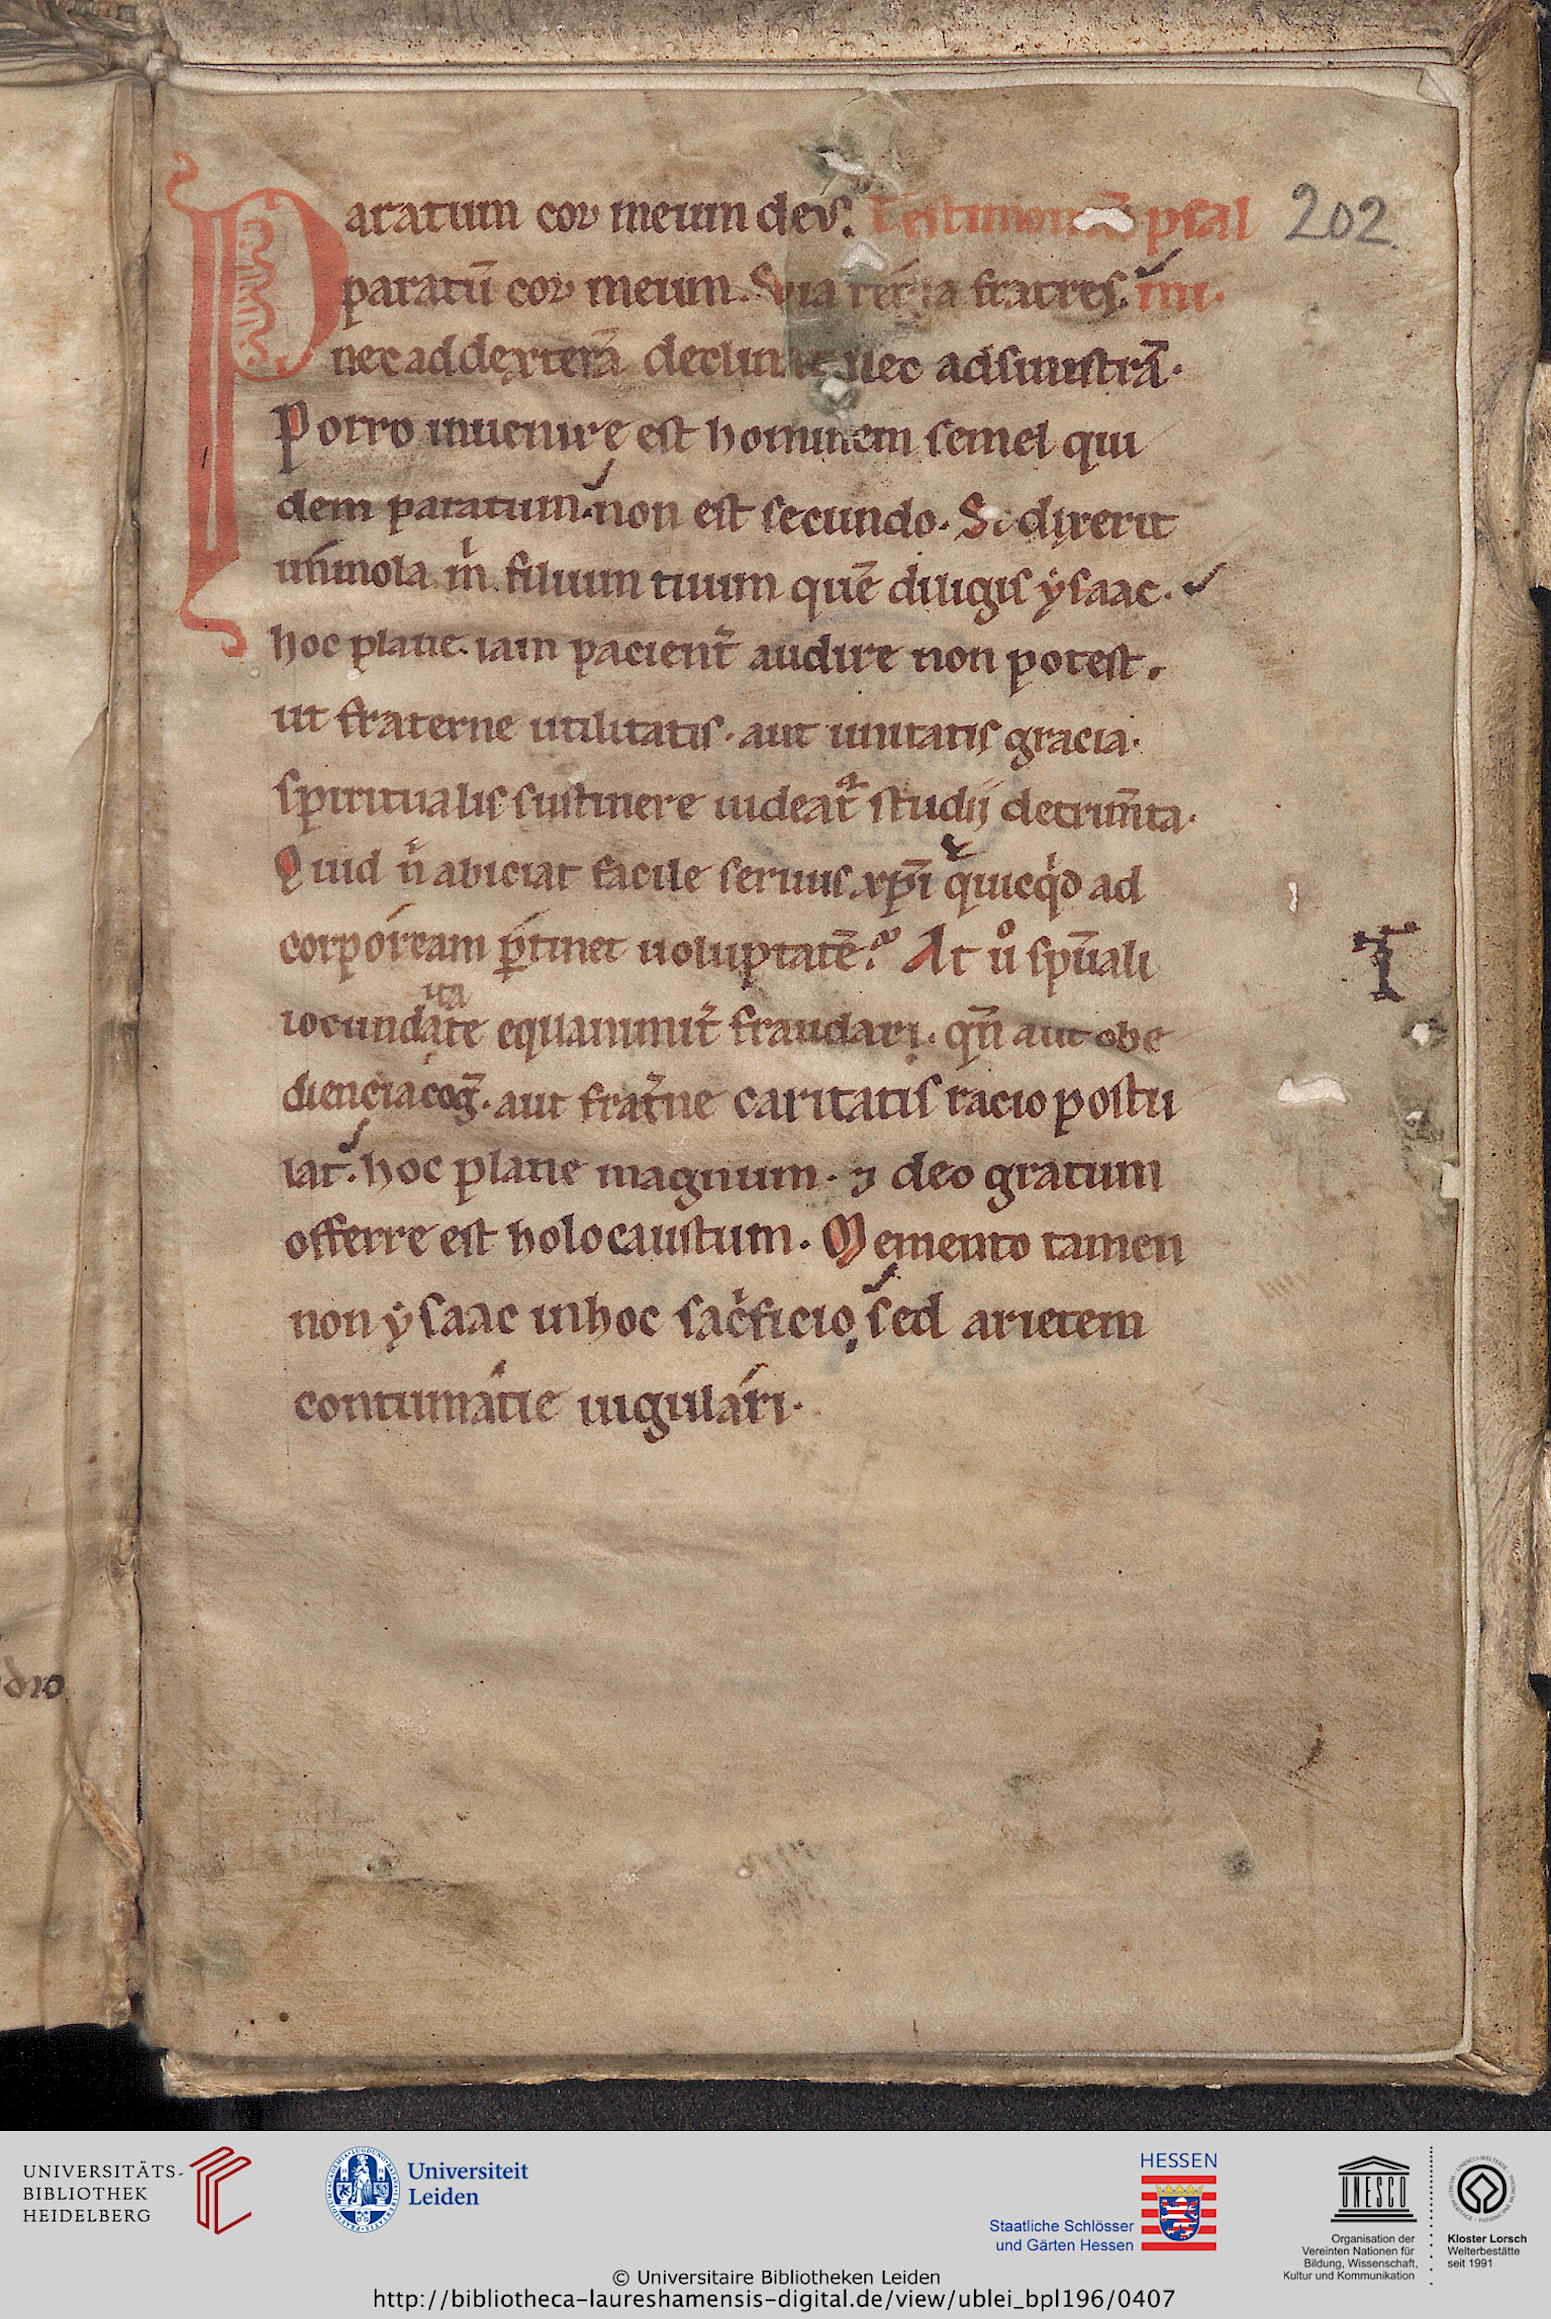 Paratum cor meum deus. Testimoniū psal
202.
paratū cor meum. Via regia fratres. mi.
nec ad dexterā declinat nec ad sinistrā.
Porro inuenire est hominem semel qui
dem paratum. non est secundo. Si dixerit
immola m̄ filium tuum quē diligis ysaac.
hoc plane. iam pacient̄ audire non potest.
ut fraterne utilitatis. aut unitatis gracia.
spiritualis sustinere uideat̄ studij detrim̄ta.
Quid n̄ abiciat facile seruus xp̄i quicq̇d ad
corpoream p̄tinet uoluptatē? At uͦ spūali
iocunditate equanimit̄ fraudari. qn̄ aut obe
diencia coḡ. aut frat̄ne caritatis racio postu
lat. hoc plane magnum. ⁊ deo gratum
offerre est holocaustum. Memento tamen
non ysaac in hoc sacͥficio sed arietem
contumacie iugulari.
dio
UNIVERSITÄTS-
BIBLIOTHEK
HEIDELBERG
Universiteit
Leiden
HESSEN
Staatliche Schlösser
und Gärten Hessen
UNESCO
Organisation der
Vereinten Nationen für
Bildung, Wissenschaft,
Kultur und Kommunikation
Kloster Lorsch
Welterbestätte
seit 1991
© Universitaire Bibliotheken Leiden
http://bibliotheca-laureshamensis-digital.de/view/ublei_bpl196/0407